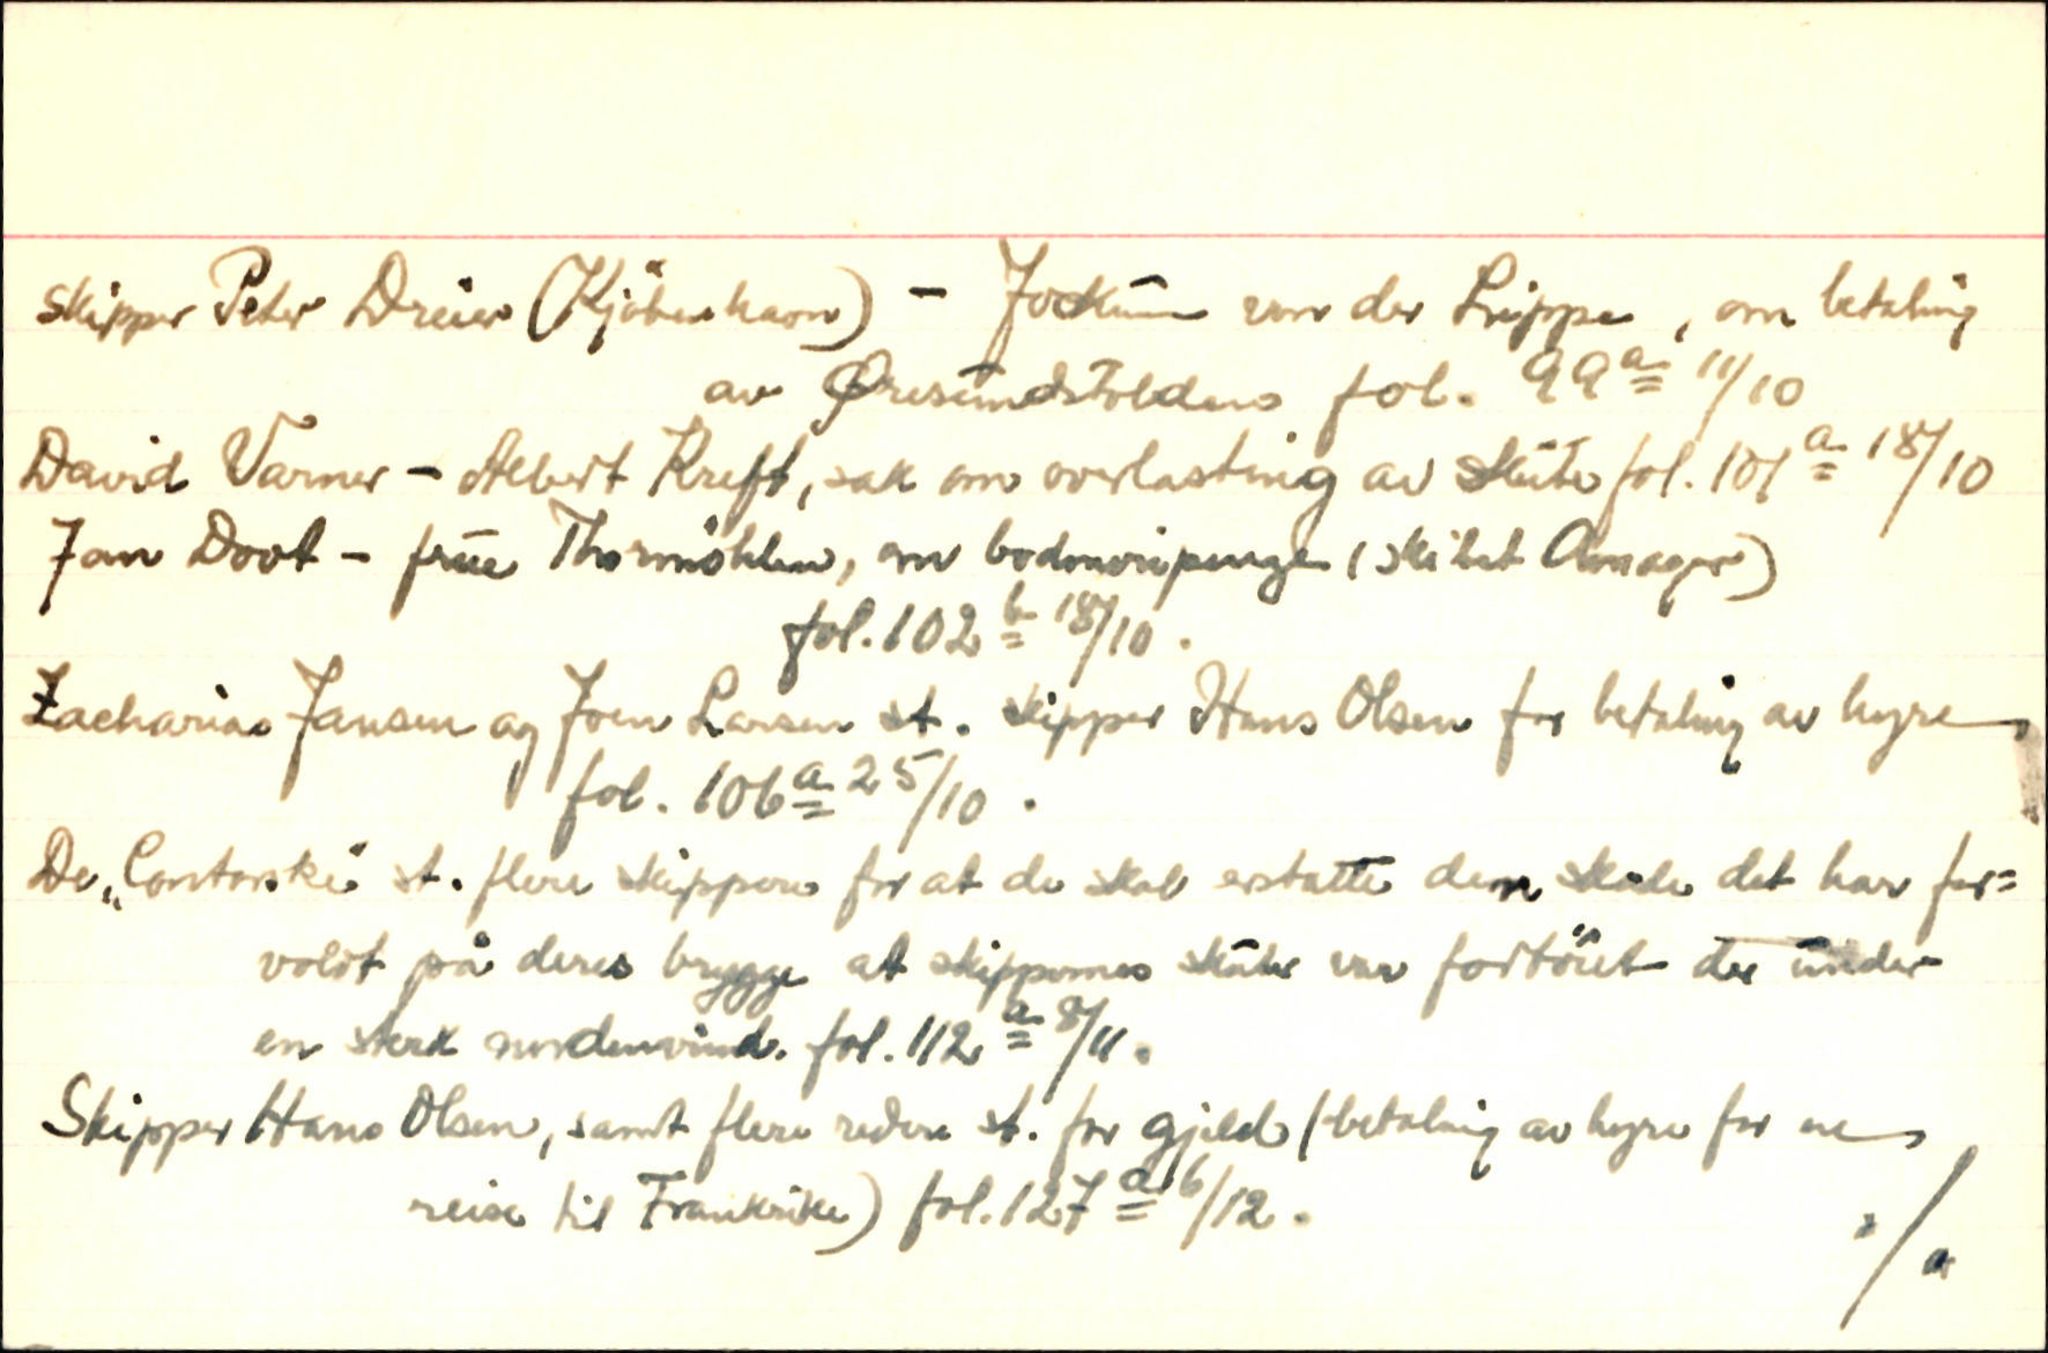 Skipper Peter Dreier (Kjöbenhavn) - Jockum von der Lippe, om betaling
av Øresundstolden fol. 99a 11/10
David Varner - Albert Kreft, sak om overlasting av skute fol. 101a 18/10
Jan Doot - frue Thormöhlen, om bodmoripenge (skibet Amager)
fol. 102b 18/10.
Zacharias Jansen og Joen Larsen st. skipper Hans Olsen for betaling av hyre
fol. 106a 25/10.
De „Contorske" st. flere skippere for at de skal erstatte den skade det har for=
voldt på deres brygge at skippernes skuter var fortöiet der under
en sterk nordenvind. fol. 112a 8/11.
Skipper Hans Olsen, samt flere redere st. for gjeld (betaling av hyre for en
reise til Frankrike) fol. 127a 16/12.
./.